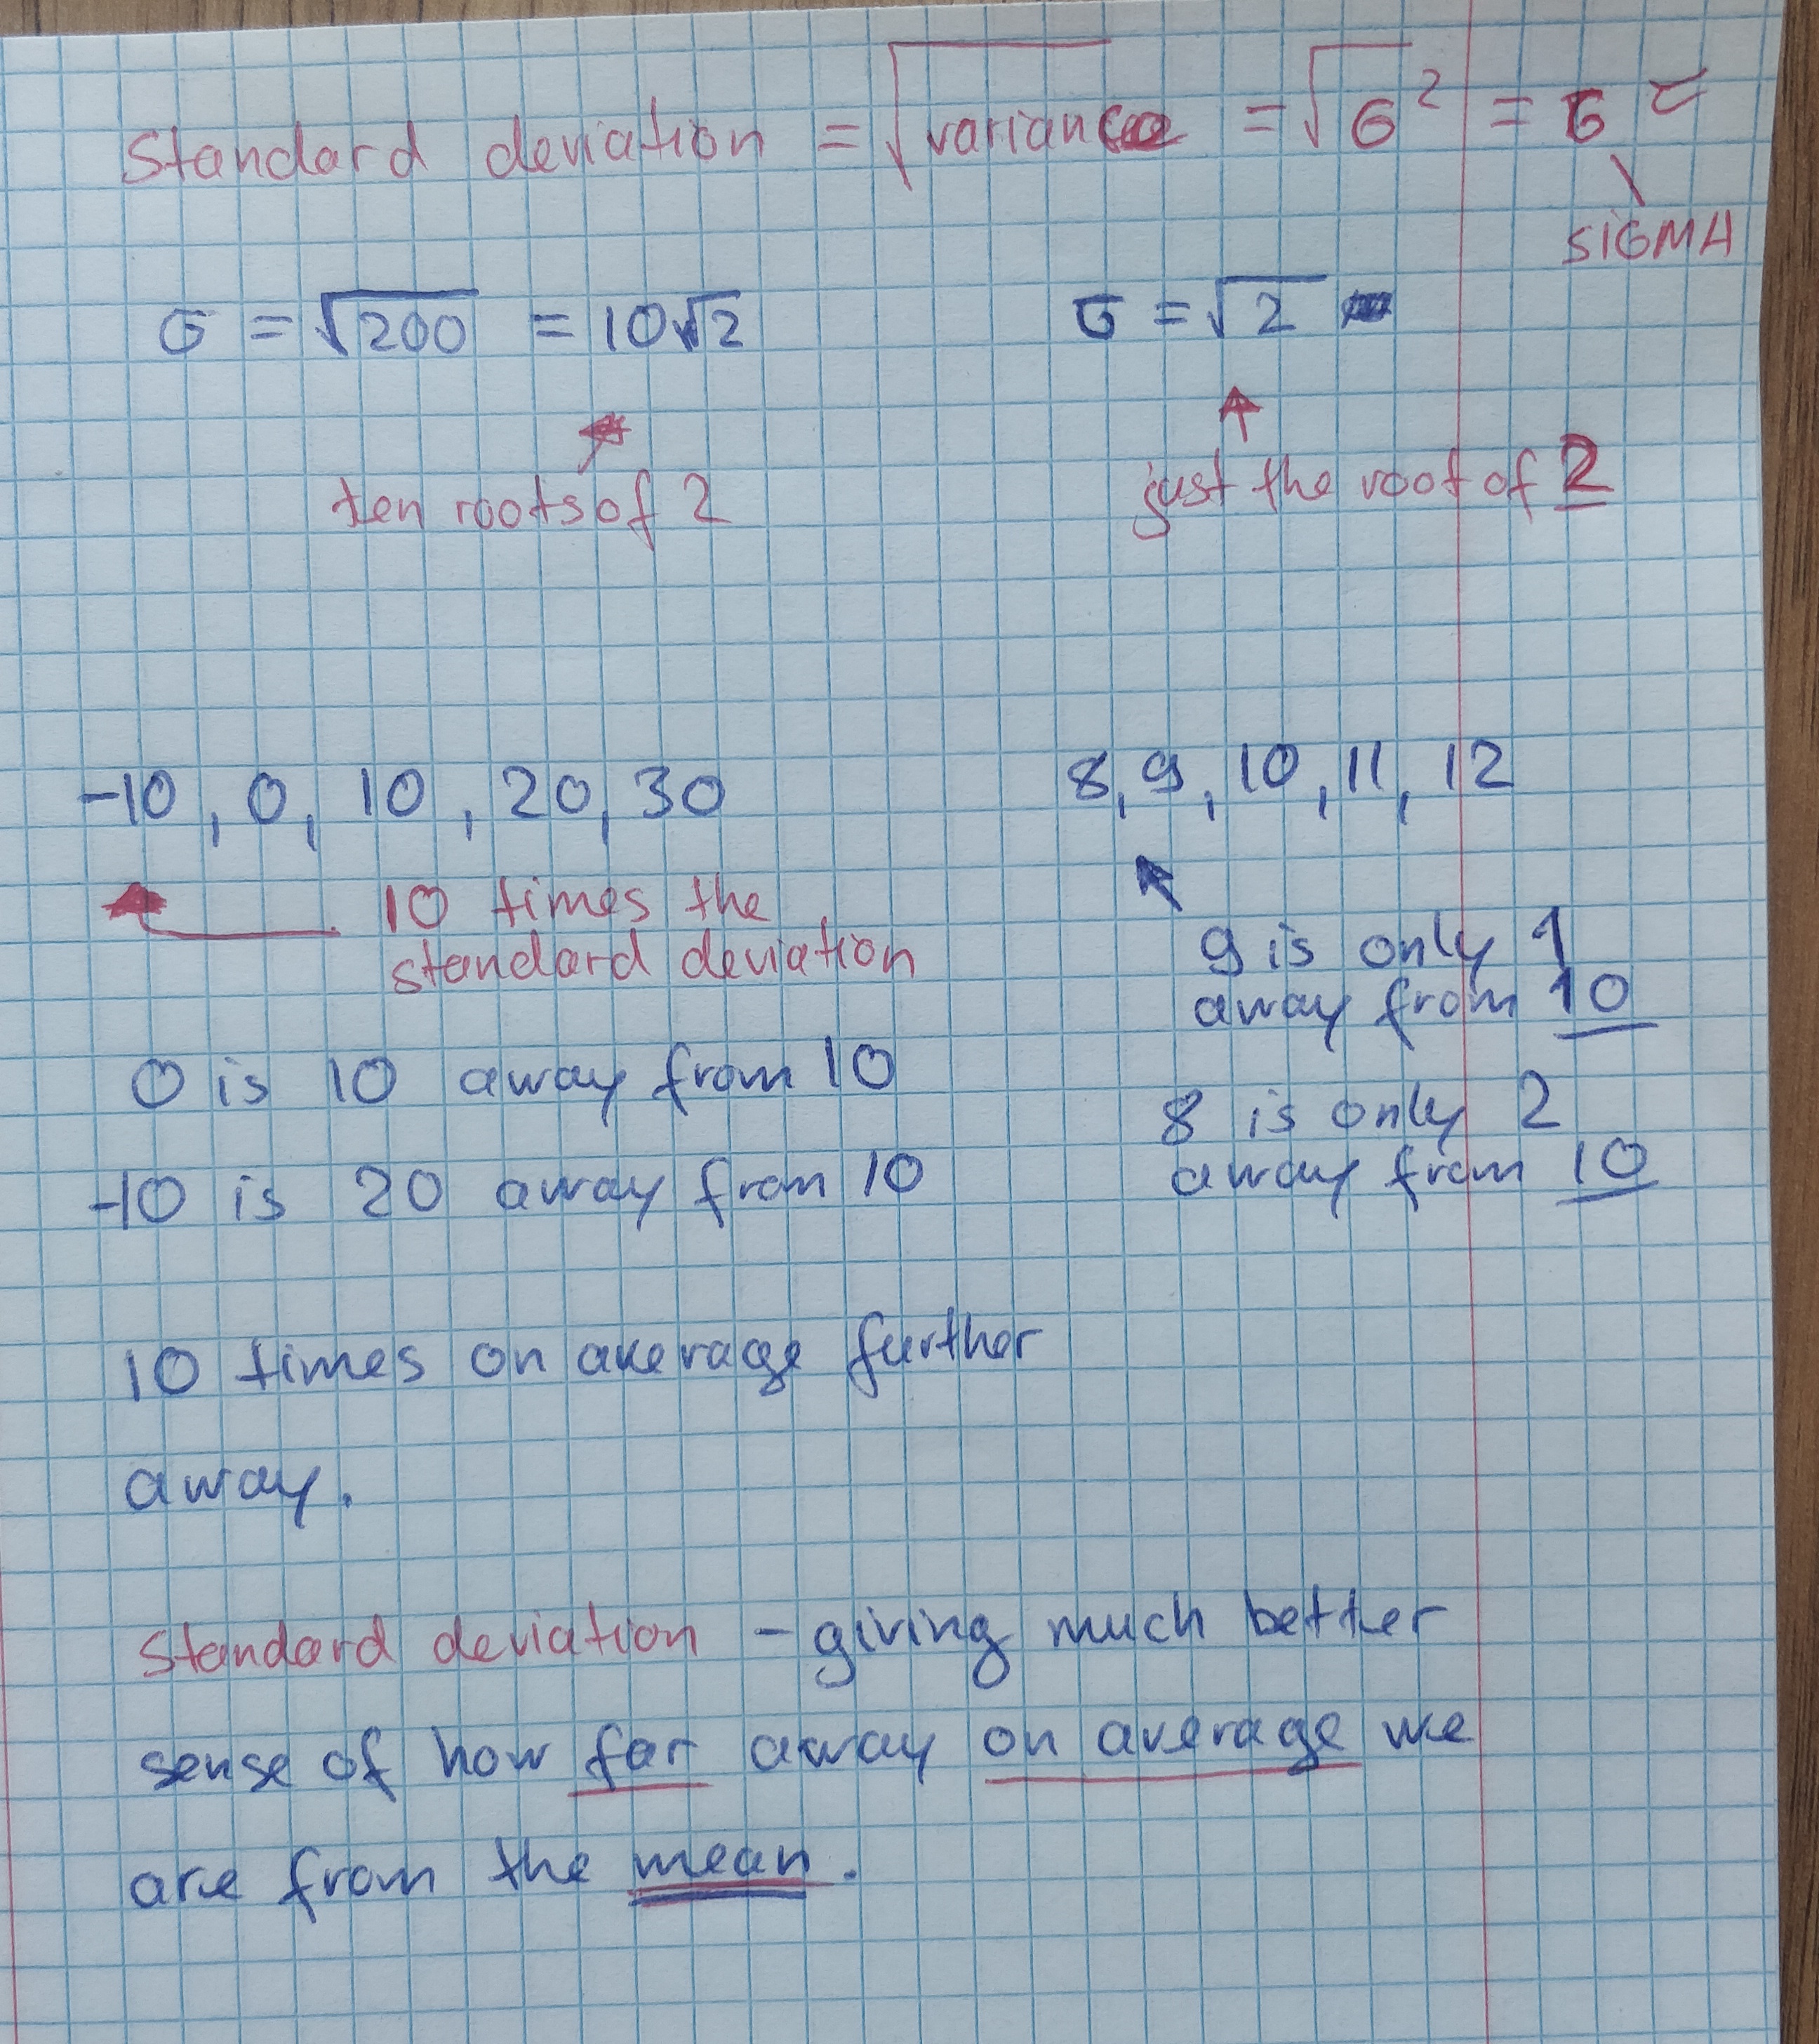 Standard deviation = √variance = √σ² = σ ~
SIGMA
σ = √200 = 10√2
σ = √2
ten roots of 2
just the root of 2
-10, 0, 10, 20, 30
8, 9, 10, 11, 12
10 times the
standard deviation
0 is 10 away from 10
-10 is 20 away from 10
9 is only 1
away from 10
8 is only 2
away from 10
10 times on average further
away.
Standard deviation - giving much better
sense of how far away on average we
are from the mean.